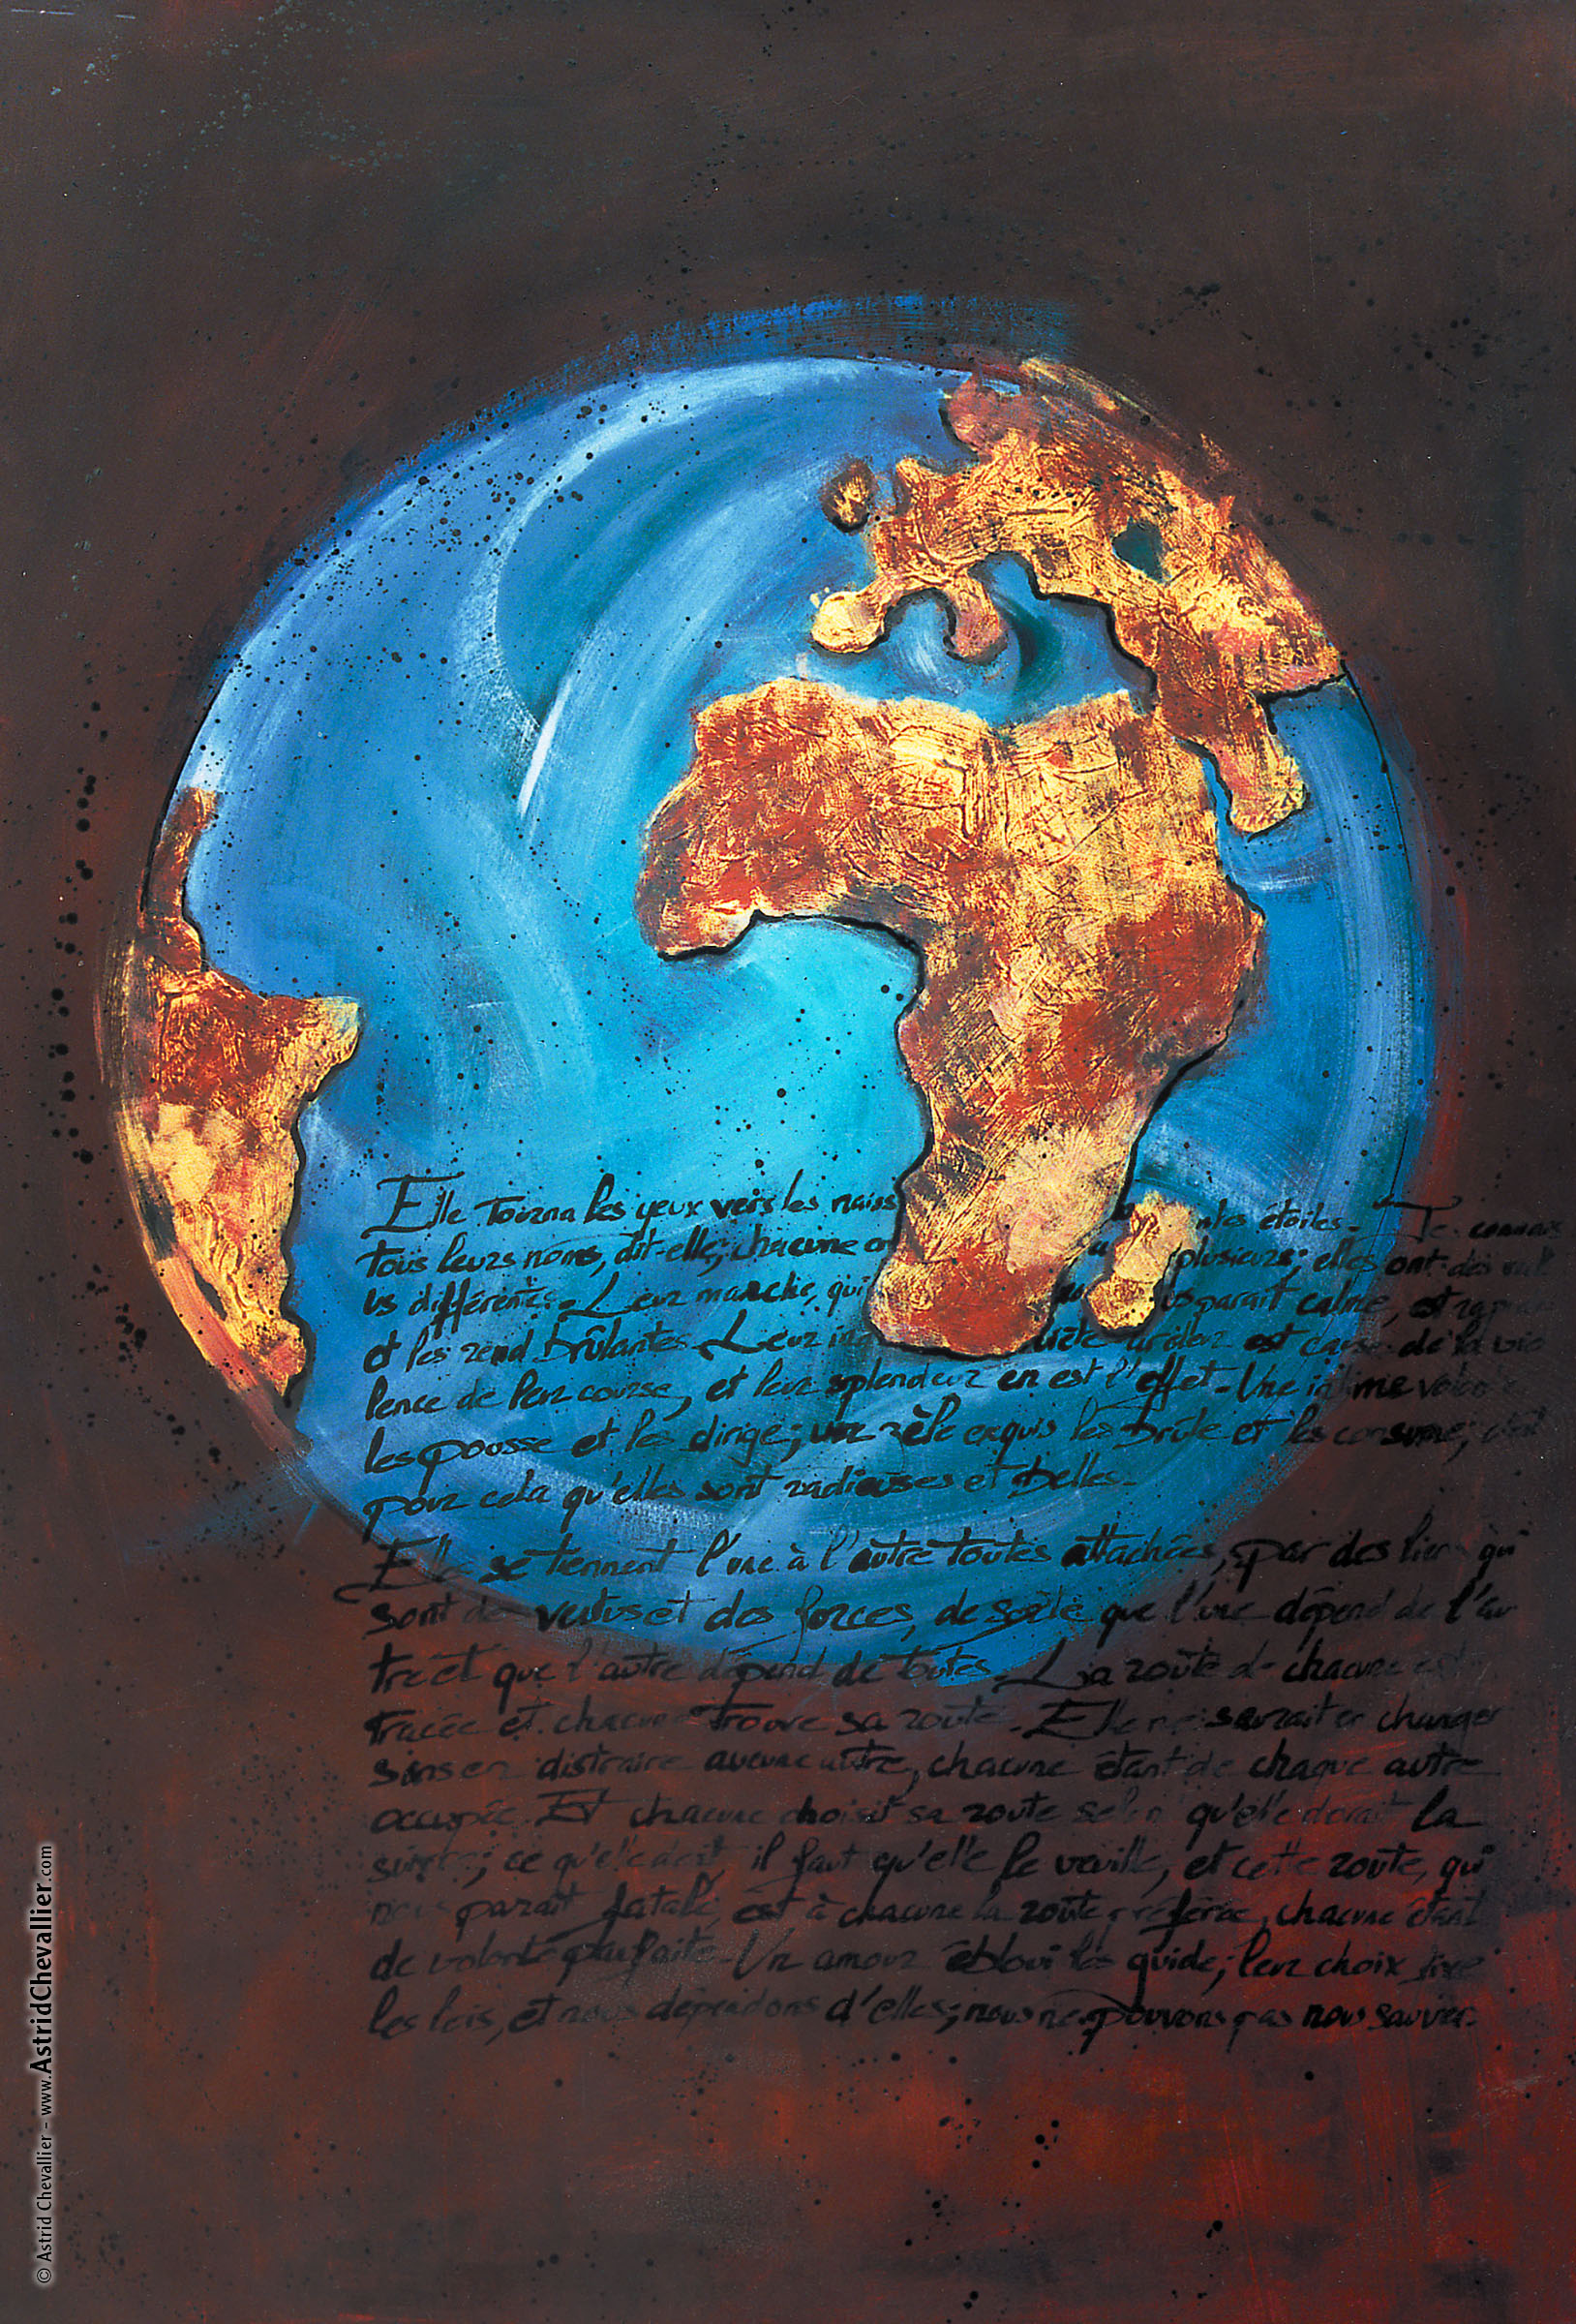 Elle tourna les yeux vers les naiss ntes étoiles - Je connais
tous leurs noms, dit-elle; chacune a plusieurs; elles ont des
us différentes - Leur marche, qui us paraît calme, est
et les rend brûlantes - Leur in ardeur est cause de la vio
lence de leur course, et leur splendeur en est l'effet - Une intime
les pousse et les dirige; un zèle exquis les brûle et les consume;
pour cela qu'elles sont radieuses et belles -
Elle se tiennent l'une à l'autre toutes attachées, par des liens qui
sont des vertus et des forces, de sorte que l'une dépend de l'au
tre et que l'autre dépend de toutes - La route de chacune est
tracée et chacune trouve sa route - Elle ne saurait en changer
sans en distraire aucune autre, chacune étant de chaque autre
occupée. Et chacune choisit sa route selon qu'elle devait la
suivre; ce qu'elle doit, il faut qu'elle le veuille, et cette route, qui
nous paraît fatale, est à chacune la route préférée, chacune étant
de volonté parfaite - Un amour ébloui les guide; leur choix fixe
les lois, et nous dépendons d'elles; nous ne pouvons pas nous sauver.
© Astrid Chevallier - www.AstridChevallier.com